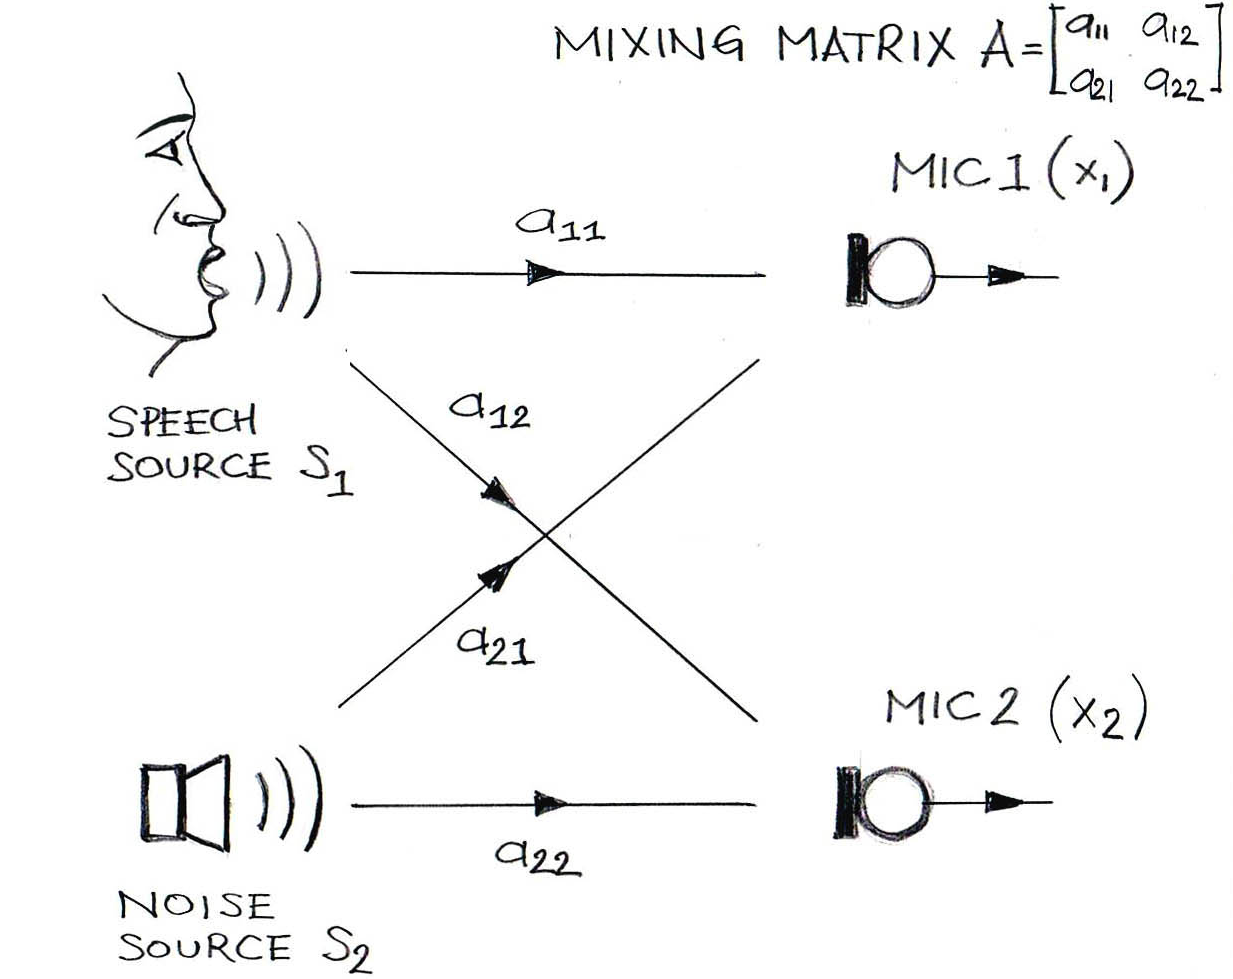 MIXING MATRIX A=[a11 a12
a21 a22]
MIC1 (x1)
a11
a12
SPEECH
SOURCE S1
a21
MIC2 (x2)
a22
NOISE
SOURCE S2